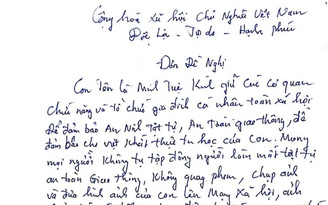 Cộng hoà xã hội Chủ Nghĩa Việt Nam
Độc lập - Tự do - Hạnh phúc
Đơn Đề Nghị
Con tên là Minh Tuệ Kính gửi các cơ quan
chức năng và tổ chức gia đình cá nhân toàn xã hội
để đảm bảo An Ninh tật tự, An Toàn giao thông, để
đảm bảo cho việc khất thực tu học của Con. Mong
mọi người Không tụ tập đông người làm mất tật tự
an toàn Giao thông, Không quay phim, chụp ảnh
và đưa hình ảnh của con lên Mạng Xã hội, ảnh